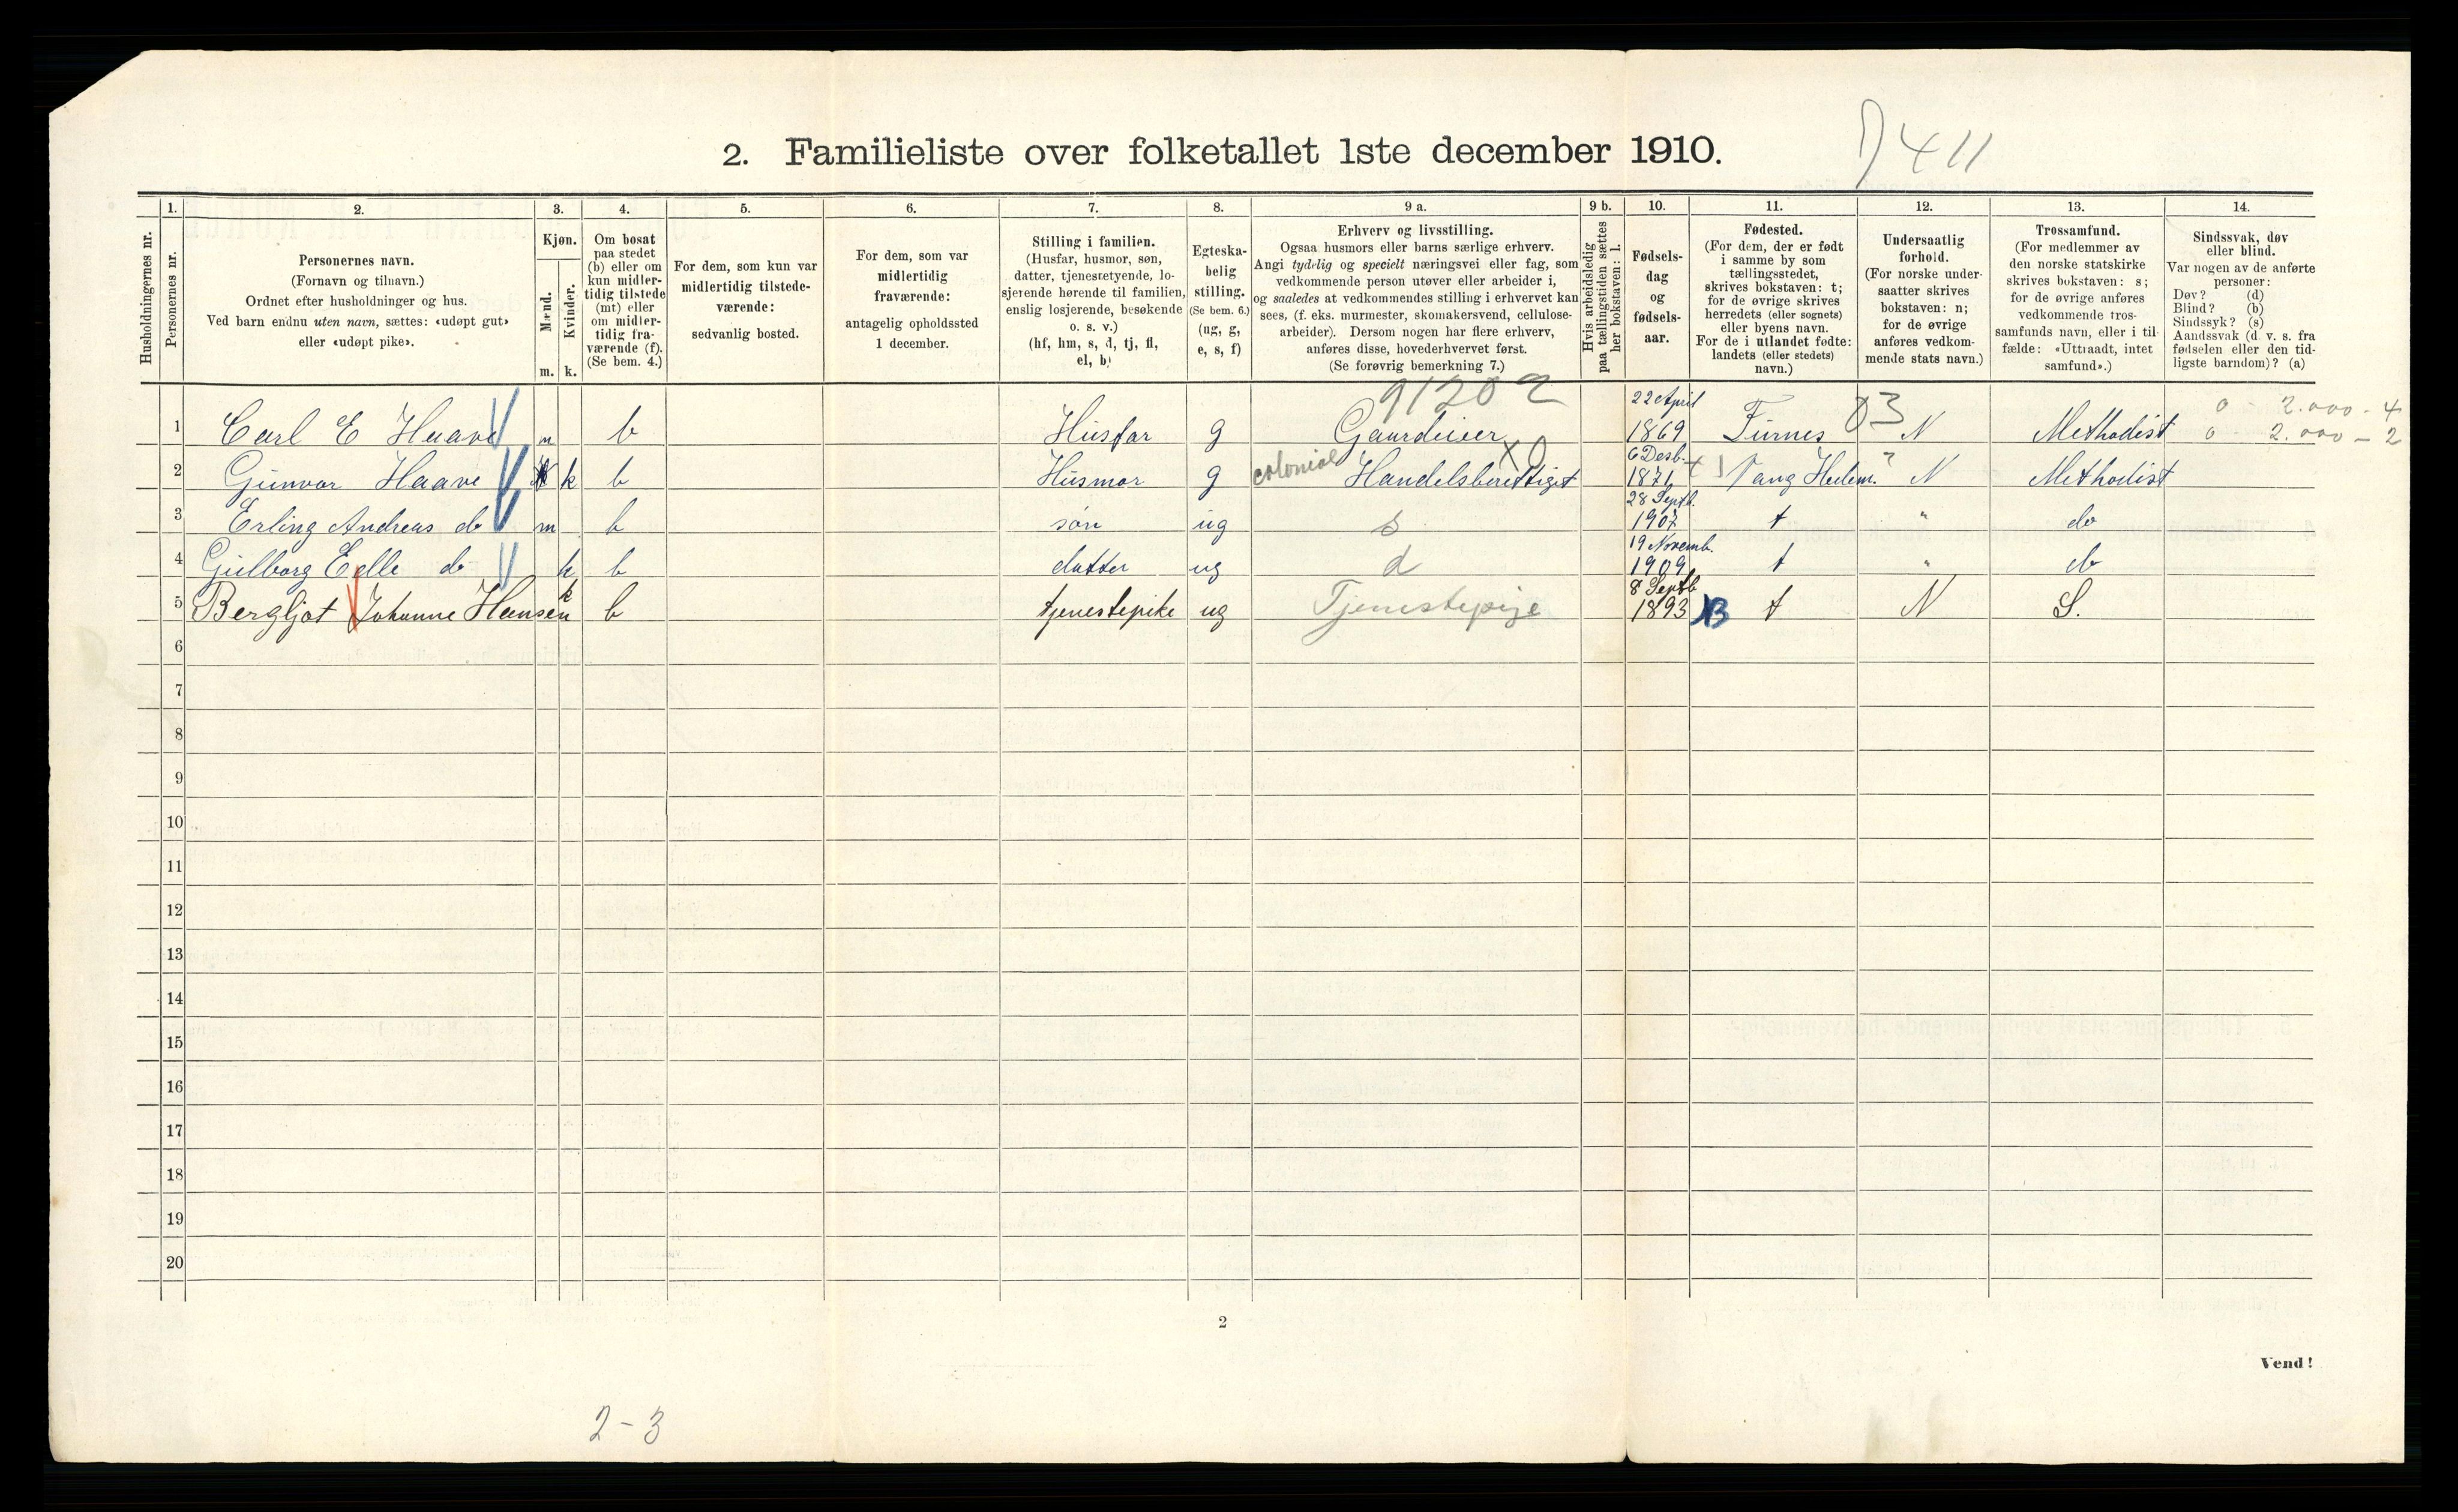 2. Familieliste over folketallet 1ste december 1910.
7411
Husholdningernes nr.
1.
Personernes nr.
2.
Personernes navn.
(Fornavn og tilnavn.)
Ordnet efter husholdninger og hus.
Ved barn endnu uten navn, sættes: «udøpt gut»
eller «udøpt pike».
3.
Kjøn.
Mænd.
Kvinder.
m. k.
4.
Om bosat
paa stedet
(b) eller om
kun midler-
tidig tilstede
(mt) eller
om midler-
tidig fra-
værende (f).
(Se bem. 4.)
5.
For dem, som kun var
midlertidig tilstede-
værende:
sedvanlig bosted.
6.
For dem, som var
midlertidig
fraværende:
antagelig opholdssted
1 december.
7.
Stilling i familien.
(Husfar, husmor, søn,
datter, tjenestetyende, lo-
sjerende hørende til familien,
enslig losjerende, besøkende
o. s. v.)
(hf, hm, s, d, tj, fl,
el, b)
8.
Egteska-
belig
stilling.
(Se bem. 6.)
(ug, g,
e, s, f)
9 a.
Erhverv og livsstilling.
Ogsaa husmors eller barns særlige erhverv.
Angi tydelig og specielt næringsvei eller fag, som
vedkommende person utøver eller arbeider i,
og saaledes at vedkommendes stilling i erhvervet kan
sees, (f. eks. murmester, skomakersvend, cellulose-
arbeider). Dersom nogen har flere erhverv,
anføres disse, hovederhvervet først.
(Se forøvrig bemerkning 7.)
9 b.
Hvis arbeidsledig
paa tællingstiden sættes
her bokstaven: l.
10.
Fødsels-
dag
og
fødsels-
aar.
11.
Fødested.
(For dem, der er født
i samme by som
tællingsstedet,
skrives bokstaven: t;
for de øvrige skrives
herredets (eller sognets)
eller byens navn.
For de i utlandet fødte:
landets (eller stedets)
navn.)
12.
Undersaatlig
forhold.
(For norske under-
saatter skrives
bokstaven: n;
for de øvrige
anføres vedkom-
mende stats navn.)
13.
Trossamfund.
(For medlemmer av
den norske statskirke
skrives bokstaven: s;
for de øvrige anføres
vedkommende tros-
samfunds navn, eller i til-
fælde: «Uttraadt, intet
samfund».)
14.
Sindssvak, døv
eller blind.
Var nogen av de anførte
personer:
Døv? (d)
Blind? (b)
Sindssyk? (s)
Aandssvak (d. v. s. fra
fødselen eller den tid-
ligste barndom)? (a)
91202
1 Carl E Haave m b Husfar g Gaardeier 22 April 1869 Furnes 83 N Methodist
0 - 2.000 - 4
0 - 2.000 - 2
2 Gunvor Haave k b Husmor g colonial Handelsberettiget X0 6 Desb. 1871 Vang Hedem. N Methodist
3 Erling Andreas do m b søn ug s 28 Septb. 1907 t " do
4 Gulborg Edle do k b datter ug d 19 Novemb. 1909 t " do
5 Bergljot Johanne Hansen k b tjenestepike ug Tjenestepige 8 Septb 1893 B t N S.
6
7
8
9
10
11
12
13
14
15
16
17
18
19
20
2
Vend!
2-3